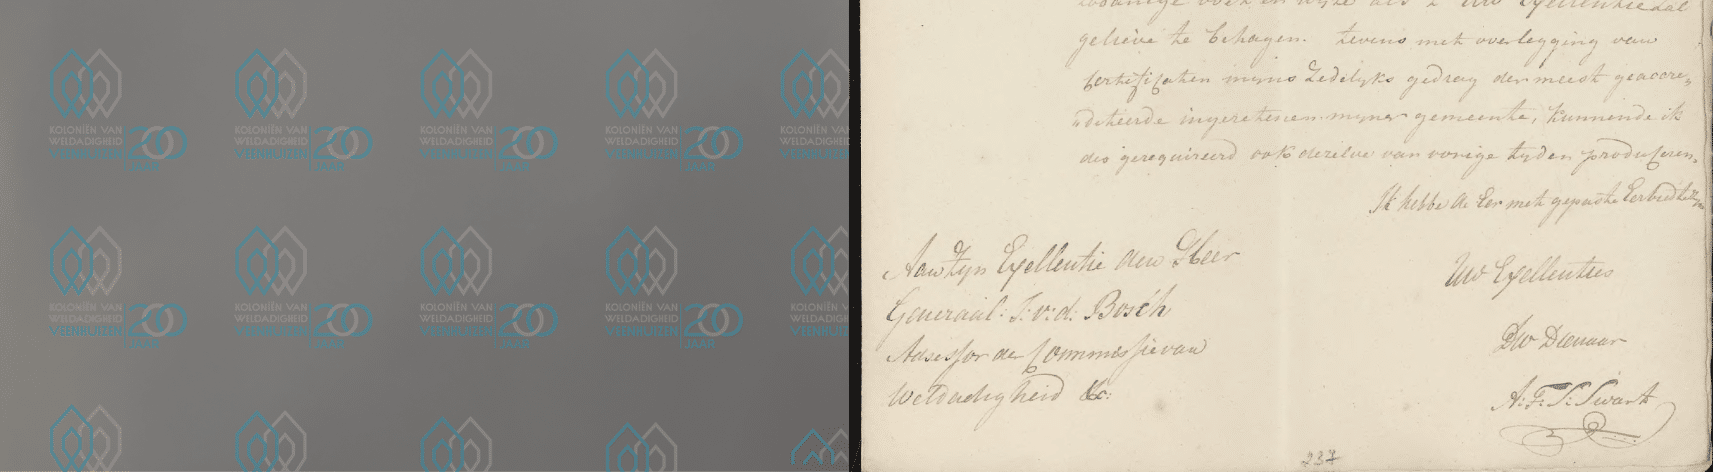 KOLONIËN VAN
WELDADIGHEID
VEENHUIZEN 200 JAAR
KOLONIËN VAN
WELDADIGHEID
VEENHUIZEN 200 JAAR
KOLONIËN VAN
WELDADIGHEID
VEENHUIZEN 200 JAAR
KOLONIËN VAN
WELDADIGHEID
VEENHUIZEN 200 JAAR
KOLONIËN VAN
WELDADIGHEID
VEENHUIZEN
KOLONIËN VAN
WELDADIGHEID
VEENHUIZEN 200 JAAR
KOLONIËN VAN
WELDADIGHEID
VEENHUIZEN 200 JAAR
KOLONIËN VAN
WELDADIGHEID
VEENHUIZEN 200 JAAR
KOLONIËN VAN
WELDADIGHEID
VEENHUIZEN 200 JAAR
KOLONIËN
WELDADIGH
VEENHUIZ
als Uw Exellentie zal
gelieve te behagen. tevens met overlegging van
Certificaten mijns Zedelyks gedrag der meest geacore„
„diteerde ingezetenen mijner gemeente, kunnende ik
des gerequireerd ook dezelve van vorige tyden produceren.
Ik hebbe de Eer met gepaste Eerbied te zyn
Uw Exellenties
Dw Dienaar
A: F: S: Swart
Aan Zyn Exellentie den Heer
Generaal: J: v: d: Bosch
Adsessor de Commissie van
Weldadigheid &c:
237